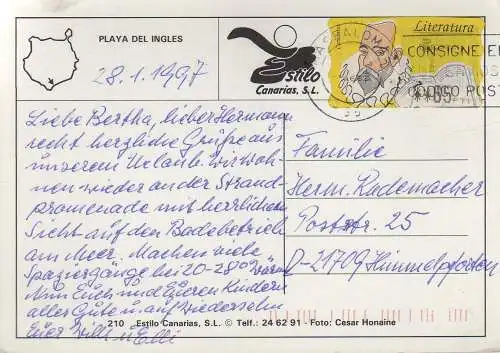 PLAYA DEL INGLES
28.1.1997
Estilo
Canarias, S.L.
Literatura
CONSIGNE EL
CODIGO POST
Liebe Bertha, lieber Hermann
recht herzliche Grüße aus
unserem Urlaub. Wir woh-
nen wieder an der Strand-
promenade mit herrlichem
Sicht auf den Badebetrieb
am Meer. Machen viele
Spaziergänge bei 20-28° Wärme
Nun Euch und Euren Kindern
alles Gute u. auf Wiedersehn
Euer Willi u. Elli
Familie
Herm. Rademacher
Poststr. 25
D-21709 Himmelpforten
210 Estilo Canarias, S.L. © Telf.: 24 62 91 - Foto: Cesar Honaine